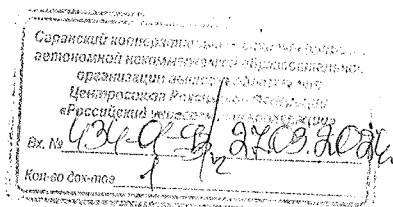 Саранский кооперативный
автономной некоммерческой образовательной
организации высшего образования
Центросоюза Российской Федерации
«Российский университет кооперации»
Вх. № 27.03.2024
Кол-во док-тов 1